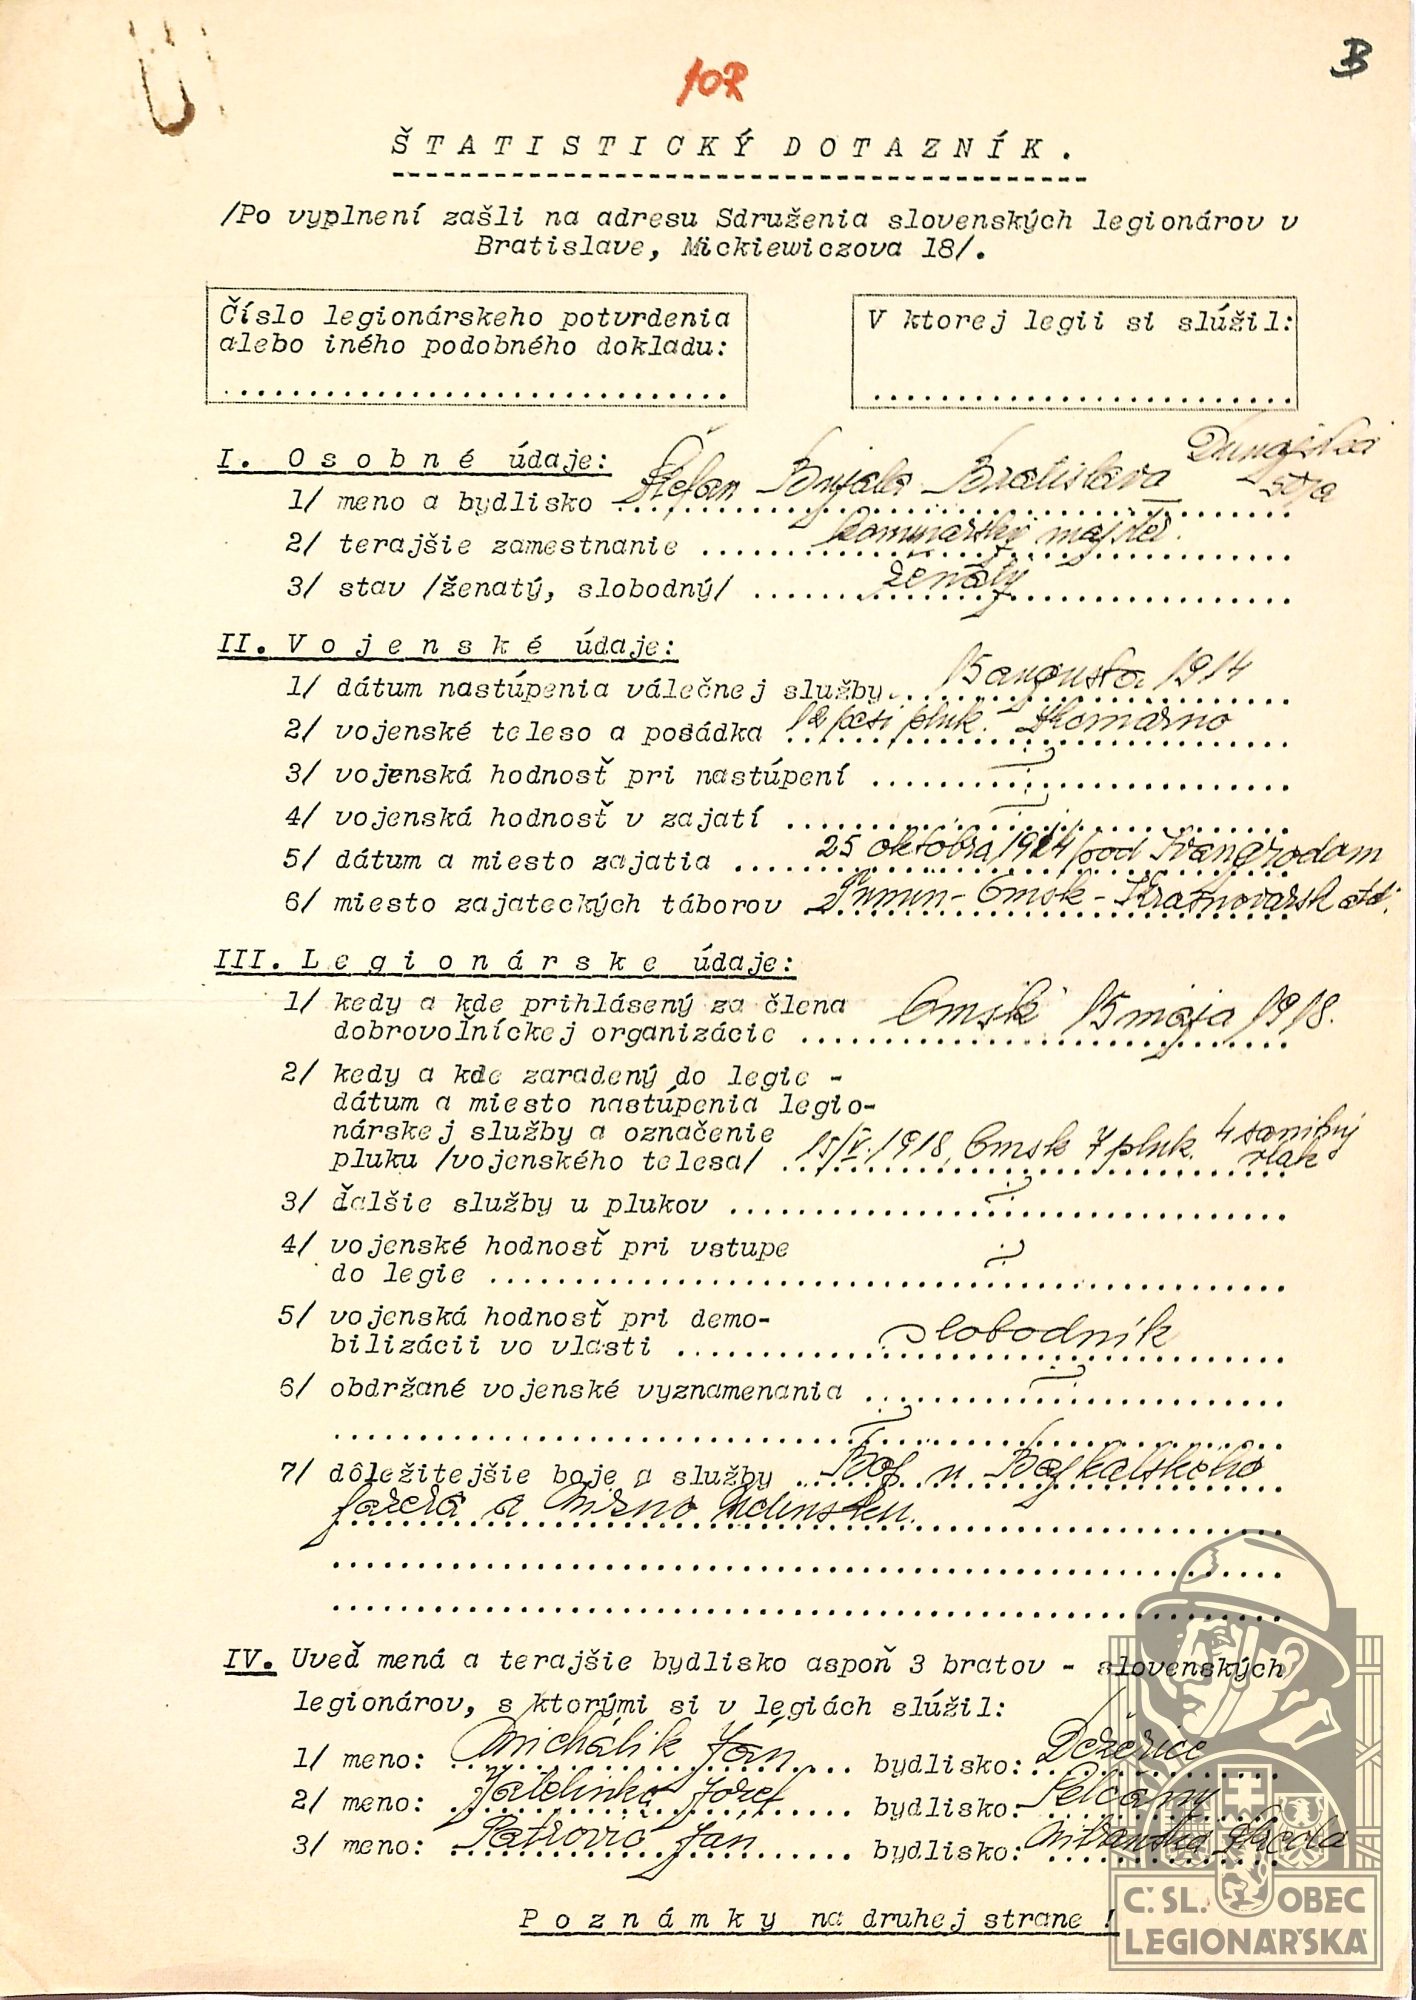 B
107
ŠTATISTICKÝ DOTAZNÍK.
/Po vyplnení zašli na adresu Sdruženia slovenských legionárov v
Bratislave, Mickiewiczova 18/.
Číslo legionárskeho potvrdenia
alebo iného podobného dokladu:
V ktorej legii si slúžil:
I. Osobné údaje:
1/ meno a bydlisko Štefan Bratislava Dunajská
2/ terajšie zamestnanie kominársky majster.
3/ stav /ženatý, slobodný/ ženatý
II. Vojenské údaje:
1/ dátum nastúpenia válečnej služby 15 augusta 1914
2/ vojenské teleso a posádka 12 peší pluk. Komárno
3/ vojenská hodnosť pri nastúpení
4/ vojenská hodnosť v zajatí
5/ dátum a miesto zajatia 25 októbra 1914 pod Ivangrodam
6/ miesto zajateckých táborov Omsk - Krasnovarsk atď.
III. Legionárske údaje:
1/ kedy a kde prihlásený za člena
dobrovoľníckej organizácie Omsk 15 mája 1918.
2/ kedy a kde zaradený do legie -
dátum a miesto nastúpenia legio-
nárskej služby a označenie
pluku /vojenského telesa/ 15/V. 1918, Omsk 7 pluk. 4 sanitný vlak
3/ ďalšie služby u plukov
4/ vojenské hodnosť pri vstupe
do legie
5/ vojenská hodnosť pri demo-
bilizácii vo vlasti slobodník
6/ obdržané vojenské vyznamenania
7/ dôležitejšie boje a služby Boj u Bajkalského
jazera a Nižno Udinsku.
IV. Uveď mená a terajšie bydlisko aspoň 3 bratov - slovenských
legionárov, s ktorými si v legiách slúžil:
1/ meno: Michálik Ján bydlisko: Dežerice
2/ meno: Jozef bydlisko: Selčany
3/ meno: Petrovič Ján bydlisko: Nitranská Streda
Poznámky na druhej strane !
Č.SL. OBEC
LEGIONÁŘSKÁ